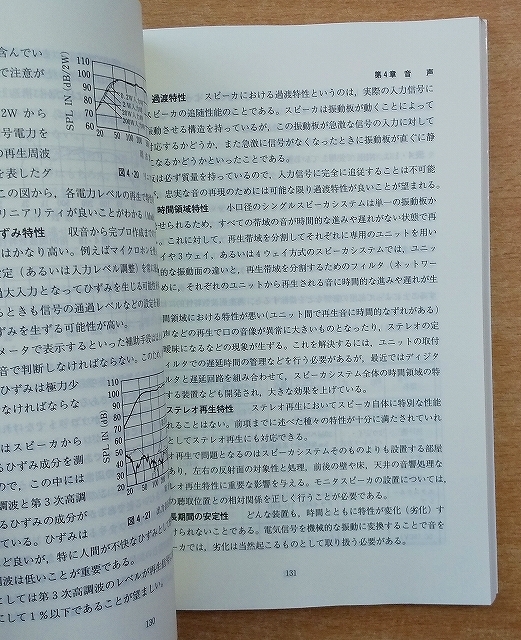 含んでい
で注意が
2W から
号電力を
の再生周波
を表したグ
この図から，各電力レベルの再生で特性
リニアリティが良いことがわかる
ずみ特性　収音から完プロ作成まで
はかなり高い。例えばマイクロホンを
定（あるいは入力レベル調整）を常に
過大入力となってひずみを生じる可能性
るときも信号の通過レベルなどの設定を
ずみを生ずる可能性が高い。
メータで表示するといった補助手段
音で判断しなければならない。この
ひずみは極力少
なければならな
はスピーカから
るひずみ成分を測
ので，この中には
調波と第3次高調
るひずみの成分が
ている。ひずみは
ど良いが，特に人間が不快なひずみとし
周波は低いことが重要である。
としては第3次高調波のレベルが再生
にして1％以下であることが望ましい。
SPL IN (dB/2W)
110
100
90
80
70
60
20 50 100
図4-20
SPL IN (dB)
110
100
90
80
70
60
50
40
30
20
20 50
図4-21
130
第4章　音　声
過渡特性　スピーカにおける過渡特性というのは，実際の入力信号に
スピーカの追随性能のことである。スピーカは振動板が動くことによって
振動させる構造を持っているが，この振動板が急激な信号の入力に対して
対応するかどうか，また急激に信号がなくなったときに振動板が直ぐに静
になるかどうかといったことである。
には必ず質量を持っているので，入力信号に完全に追従することは不可能
が，忠実な音の再現のためには可能な限り過渡特性が良いことが望まれる。
時間領域特性　小口径のシングルスピーカシステムは単一の振動板か
せられるため，すべての帯域の音が時間的な進みや遅れがない状態で再
。これに対して，再生帯域を分割してそれぞれに専用のユニットを用い
イや3ウェイ，あるいは4ウェイ方式のスピーカシステムでは，ユニッ
的な振動面の違いと，再生帯域を分割するためのフィルタ（ネットワー
めに，それぞれのユニットから再生される音に時間的な進みや遅れが生
間領域における特性が悪い（ユニット間で再生音に時間的なずれがある）
声などの再生で口の音像が異常に大きいものとなったり，ステレオの定
曖昧になるなどの現象が生ずる。これを解決するには，ユニットの取付
ィルタでの遅延時間の管理などを行う必要があるが，最近ではディジタ
ルタと遅延回路を組み合わせて，スピーカシステム全体の時間領域の特
する装置なども開発され，大きな効果を上げている。
ステレオ再生特性　ステレオ再生においてスピーカ自体に特別な性能
れることはない。前項までに述べた種々の特性が十分に満たされていれ
としてステレオ再生にも対応できる。
オ再生で問題となるのはスピーカシステムそのものよりも設置する部屋
あり，左右の反射面の対象性と処理，前後の壁や床，天井の音響処理な
テレオ再生特性に重要な影響を与える。モニタスピーカの設置については，
の聴取位置との相対関係を正しく行うことが必要である。
長期間の安定性　どんな装置も，時間とともに特性が変化（劣化）す
けられないことである。電気信号を機械的な振動に変換することで音を
ーカでは，劣化は当然起こるものとして取り扱う必要がある。
131